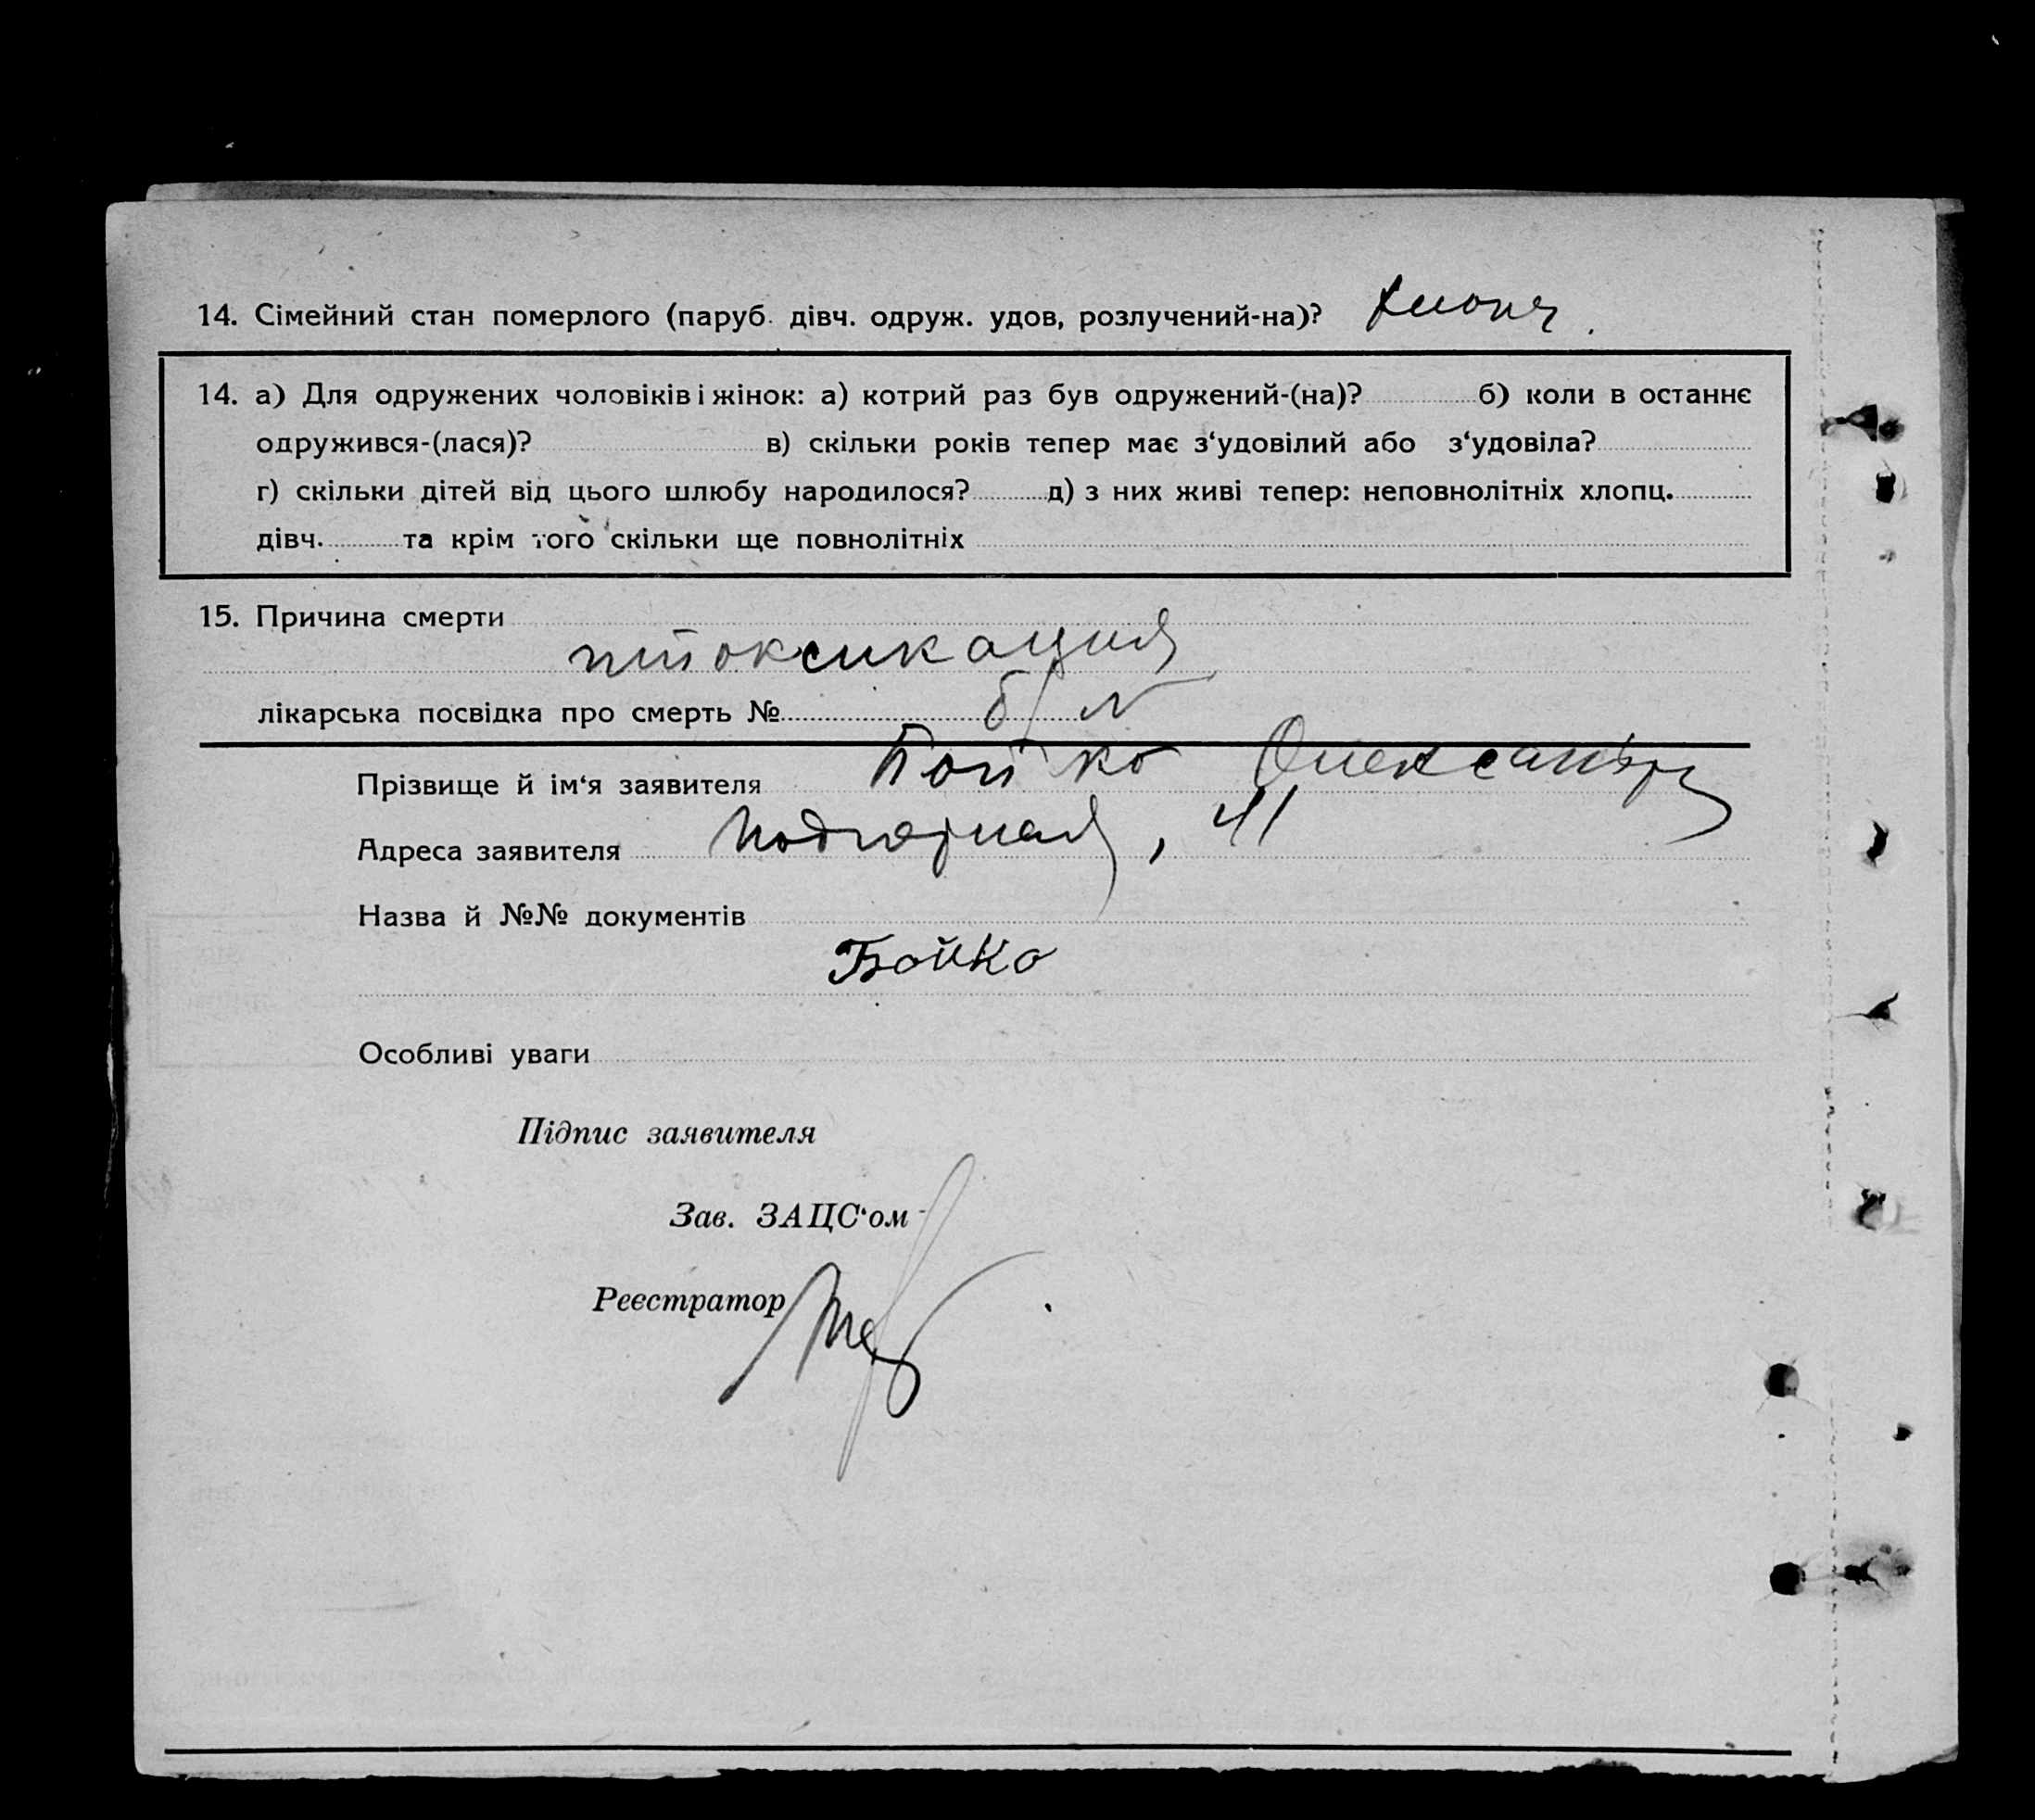 14. Сімейний стан померлого (паруб. дівч. одруж. удов, розлучений-на)? хлопч.
14. а) Для одружених чоловіків і жінок: а) котрий раз був одружений-(на)? б) коли в останнє
одружився-(лася)? в) скільки років тепер має з‘удовілий або з‘удовіла?
г) скільки дітей від цього шлюбу народилося? д) з них живі тепер: неповнолітніх хлопц.
дівч. та крім того скільки ще повнолітніх
15. Причина смерти
интоксикация
лікарська посвідка про смерть № б/N
Прізвище й ім‘я заявителя Бойко Олександр
Адреса заявителя Подгорная, 41
Назва й №№ документів
Бойко
Особливі уваги
Підпис заявителя
Зав. ЗАЦС‘ом
Реєстратор